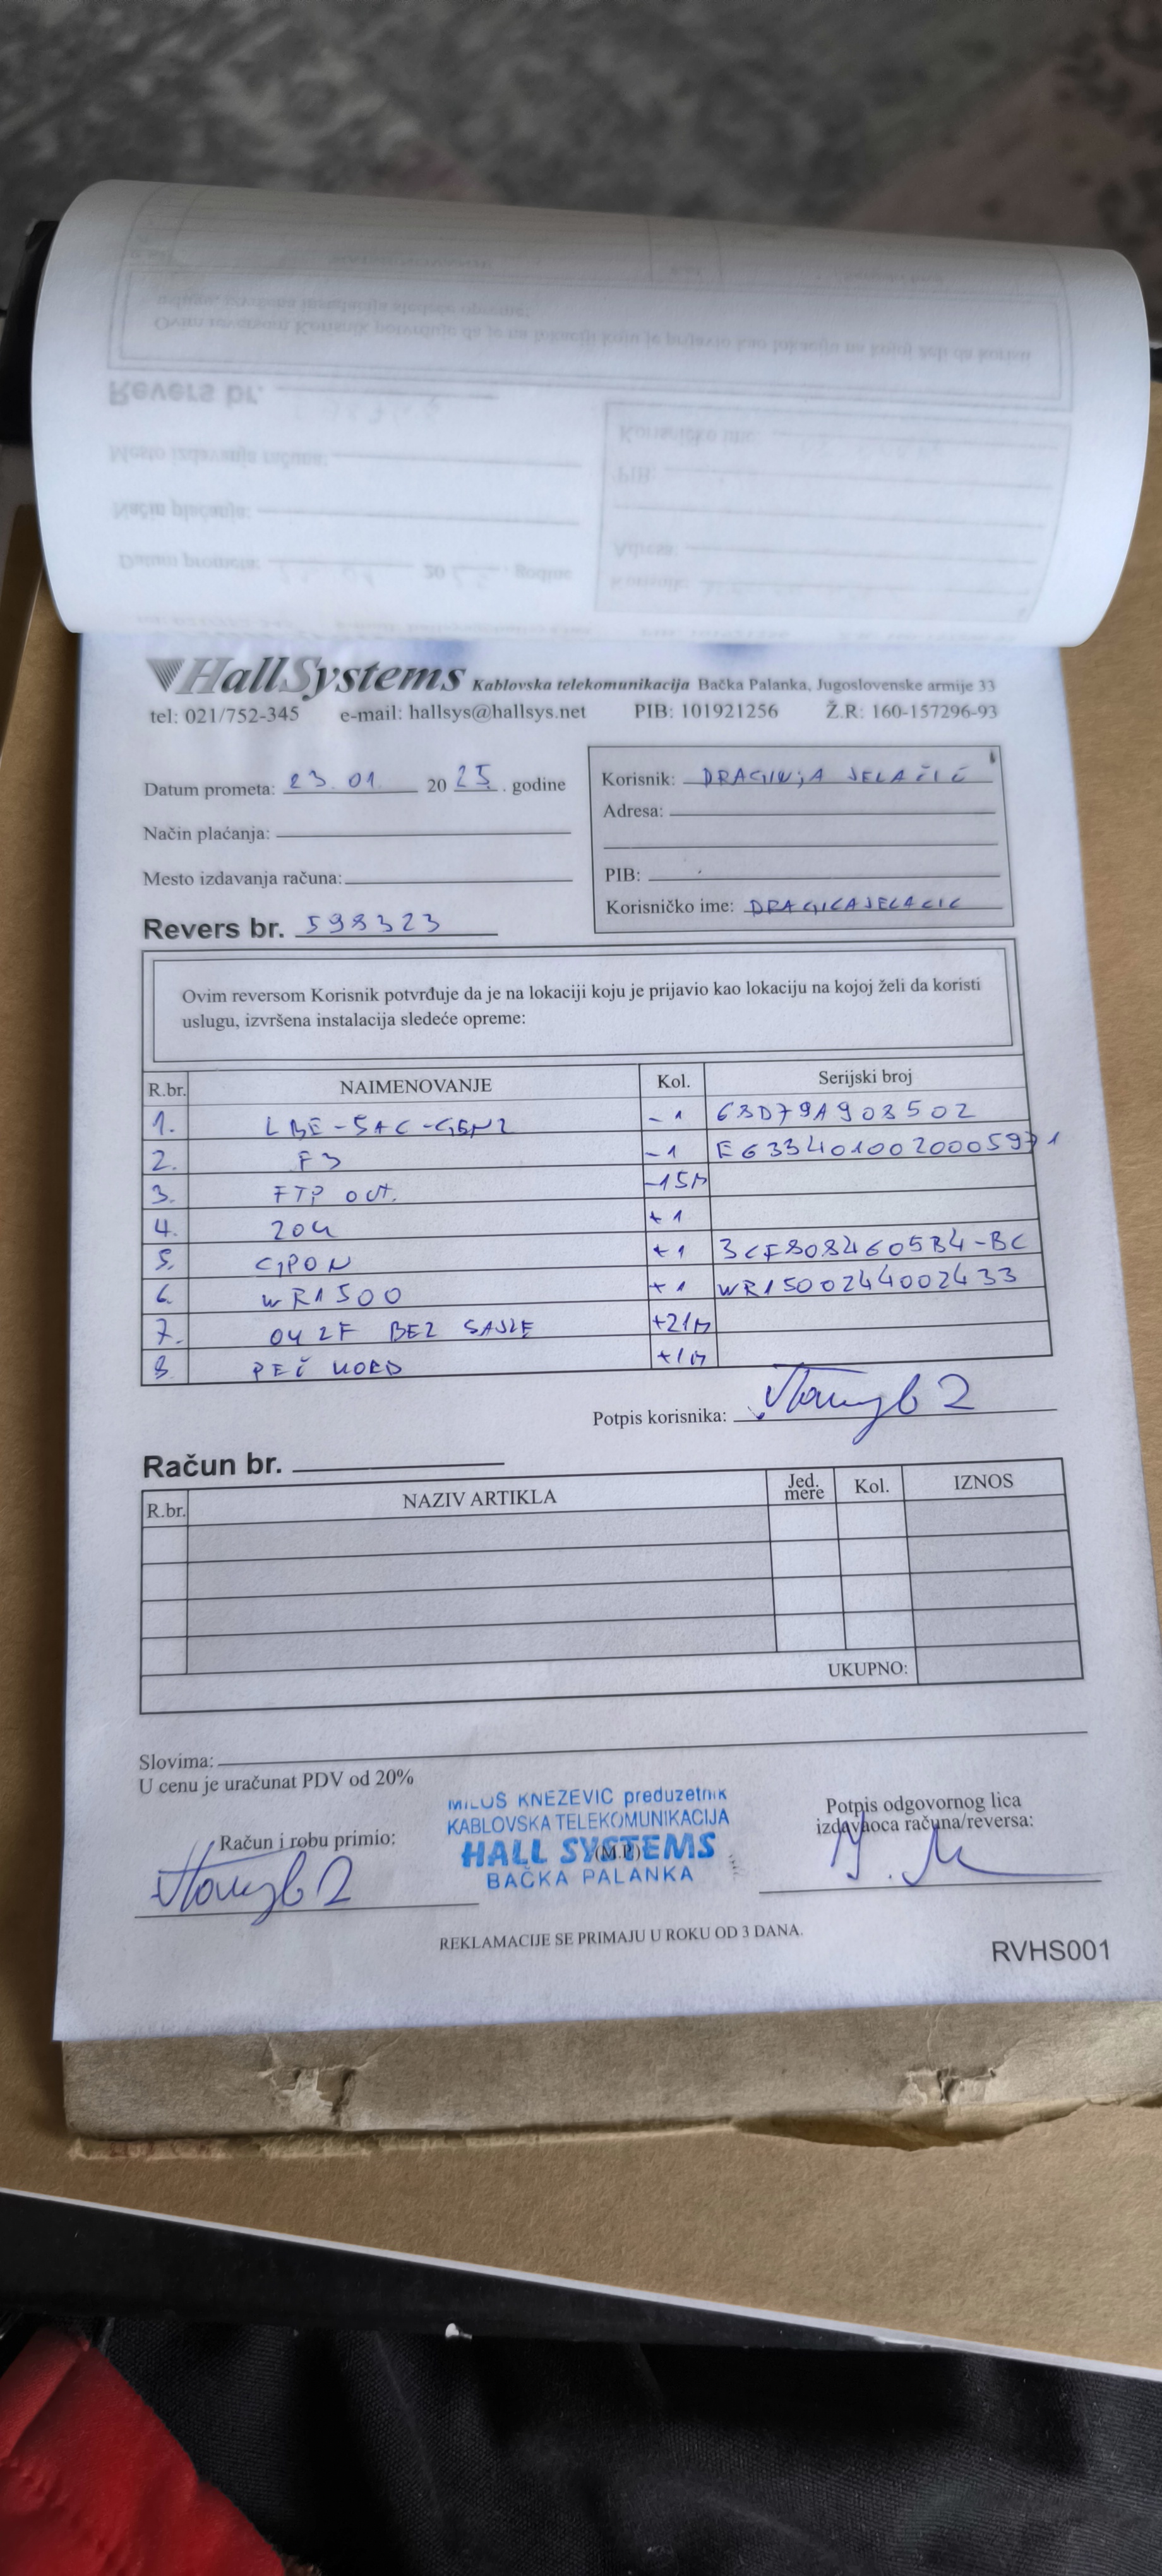 HallSystems Kablovska telekomunikacija Bačka Palanka, Jugoslovenske armije 33
tel: 021/752-345 e-mail: hallsys@hallsys.net PIB: 101921256 Ž.R: 160-157296-93
Datum prometa: 23. 01. 20 25. godine
Način plaćanja:
Mesto izdavanja računa:
Revers br. 598323
Korisnik: DRAGINJA JELAČIĆ
Adresa:
PIB:
Korisničko ime: DRAGICAJELACIC
Ovim reversom Korisnik potvrđuje da je na lokaciji koju je prijavio kao lokaciju na kojoj želi da koristi
uslugu, izvršena instalacija sledeće opreme:
R.br. NAIMENOVANJE Kol. Serijski broj
1. LBE-5AC-GEN2 -1 68D79A903502
2. F3 -1 E6334010020005971
3. FTP out. -15M
4. ZOK +1
5. GPON +1 3CF8084605B4-BC
6. WR1500 +1 WR1500244002433
7. OK 2F BEZ SAJLE +21M
8. PEČ KORD +1M
Potpis korisnika:
Račun br.
R.br. NAZIV ARTIKLA Jed. mere Kol. IZNOS
UKUPNO:
Slovima:
U cenu je uračunat PDV od 20%
Račun i robu primio:
MILOŠ KNEZEVIC preduzetnik
KABLOVSKA TELEKOMUNIKACIJA
HALL SYSTEMS
(M.P.)
BAČKA PALANKA
Potpis odgovornog lica
izdavaoca računa/reversa:
REKLAMACIJE SE PRIMAJU U ROKU OD 3 DANA.
RVHS001